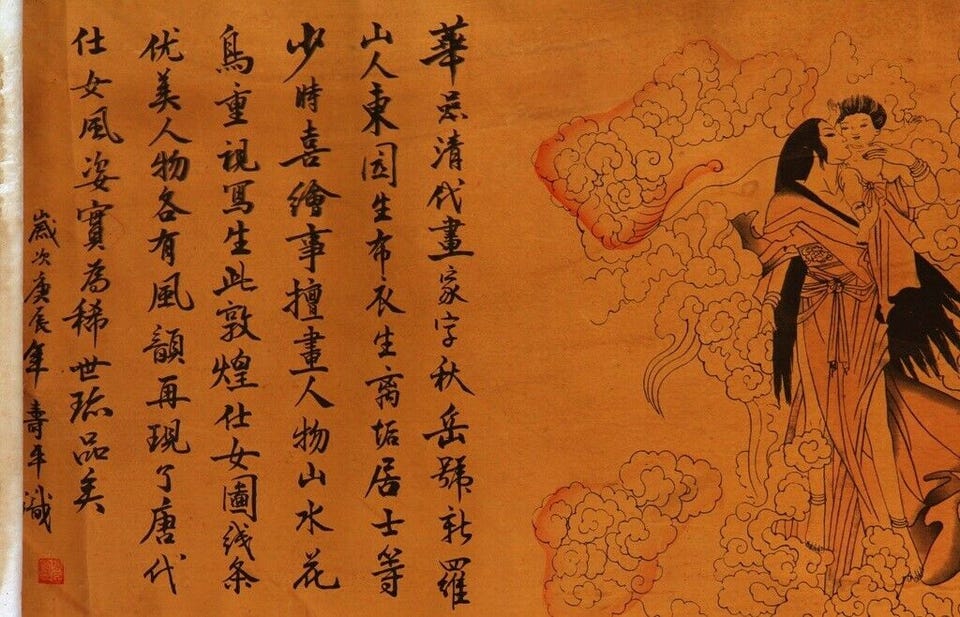 華嵒清代畫家字秋岳號新羅
山人東园生布衣生离垢居士等
少時喜繪事擅畫人物山水花
鳥重視寫生此敦煌仕女圖线条
优美人物各有風韻再現了唐代
仕女風姿實為稀世珎品矣
歲次庚辰年壽平識